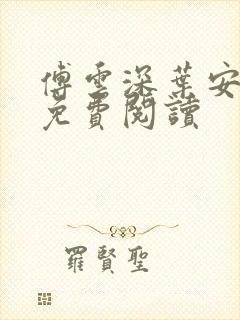 傅雲深葉安
免費閱讀
羅賢聖